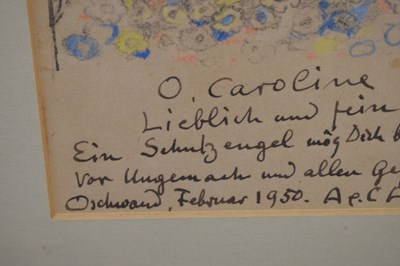 O, Caroline
Lieblich und fein
Ein Schutzengel mög Dich
Vor Ungemach und allen
Oschwand, Februar 1950.